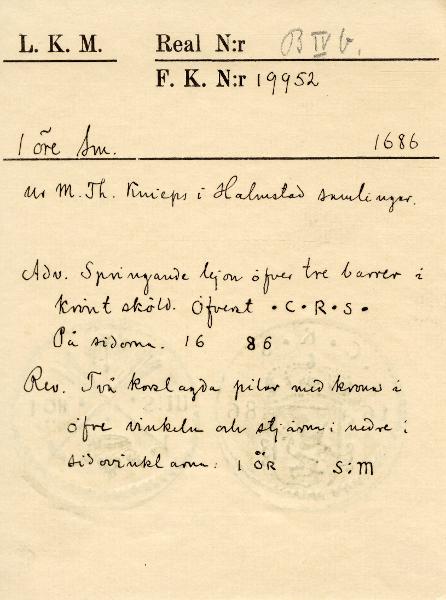 L. K. M. Real N:r B IV b.
F. K. N:r 19952
1 öre Sm. 1686
Ur M. Th. Knieps i Halmstad samlingar.
Adv. Springande lejon öfver tre barrer i
krönt sköld. Öfverst • C • R • S •
På sidorna. 16 86
Rev. Två korslagda pilar med krona i
öfre vinkeln och stjärna i nedre i
sidovinklarna: 1 ÖR S:M